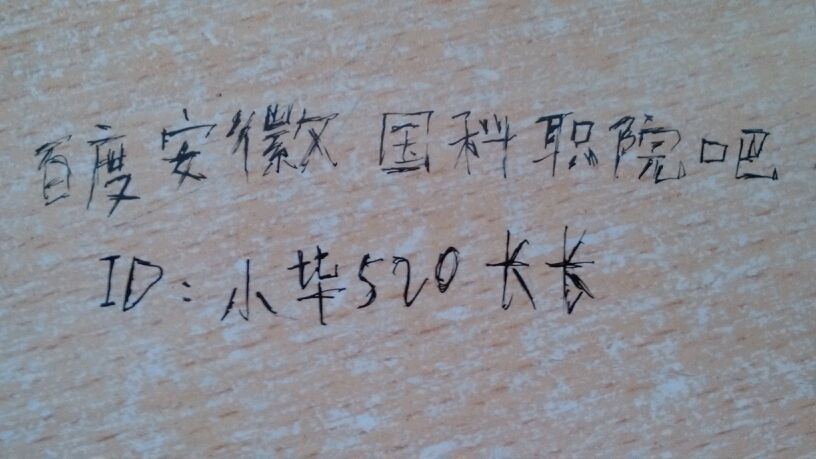 百度安徽国科职院吧
ID:小毕520长长